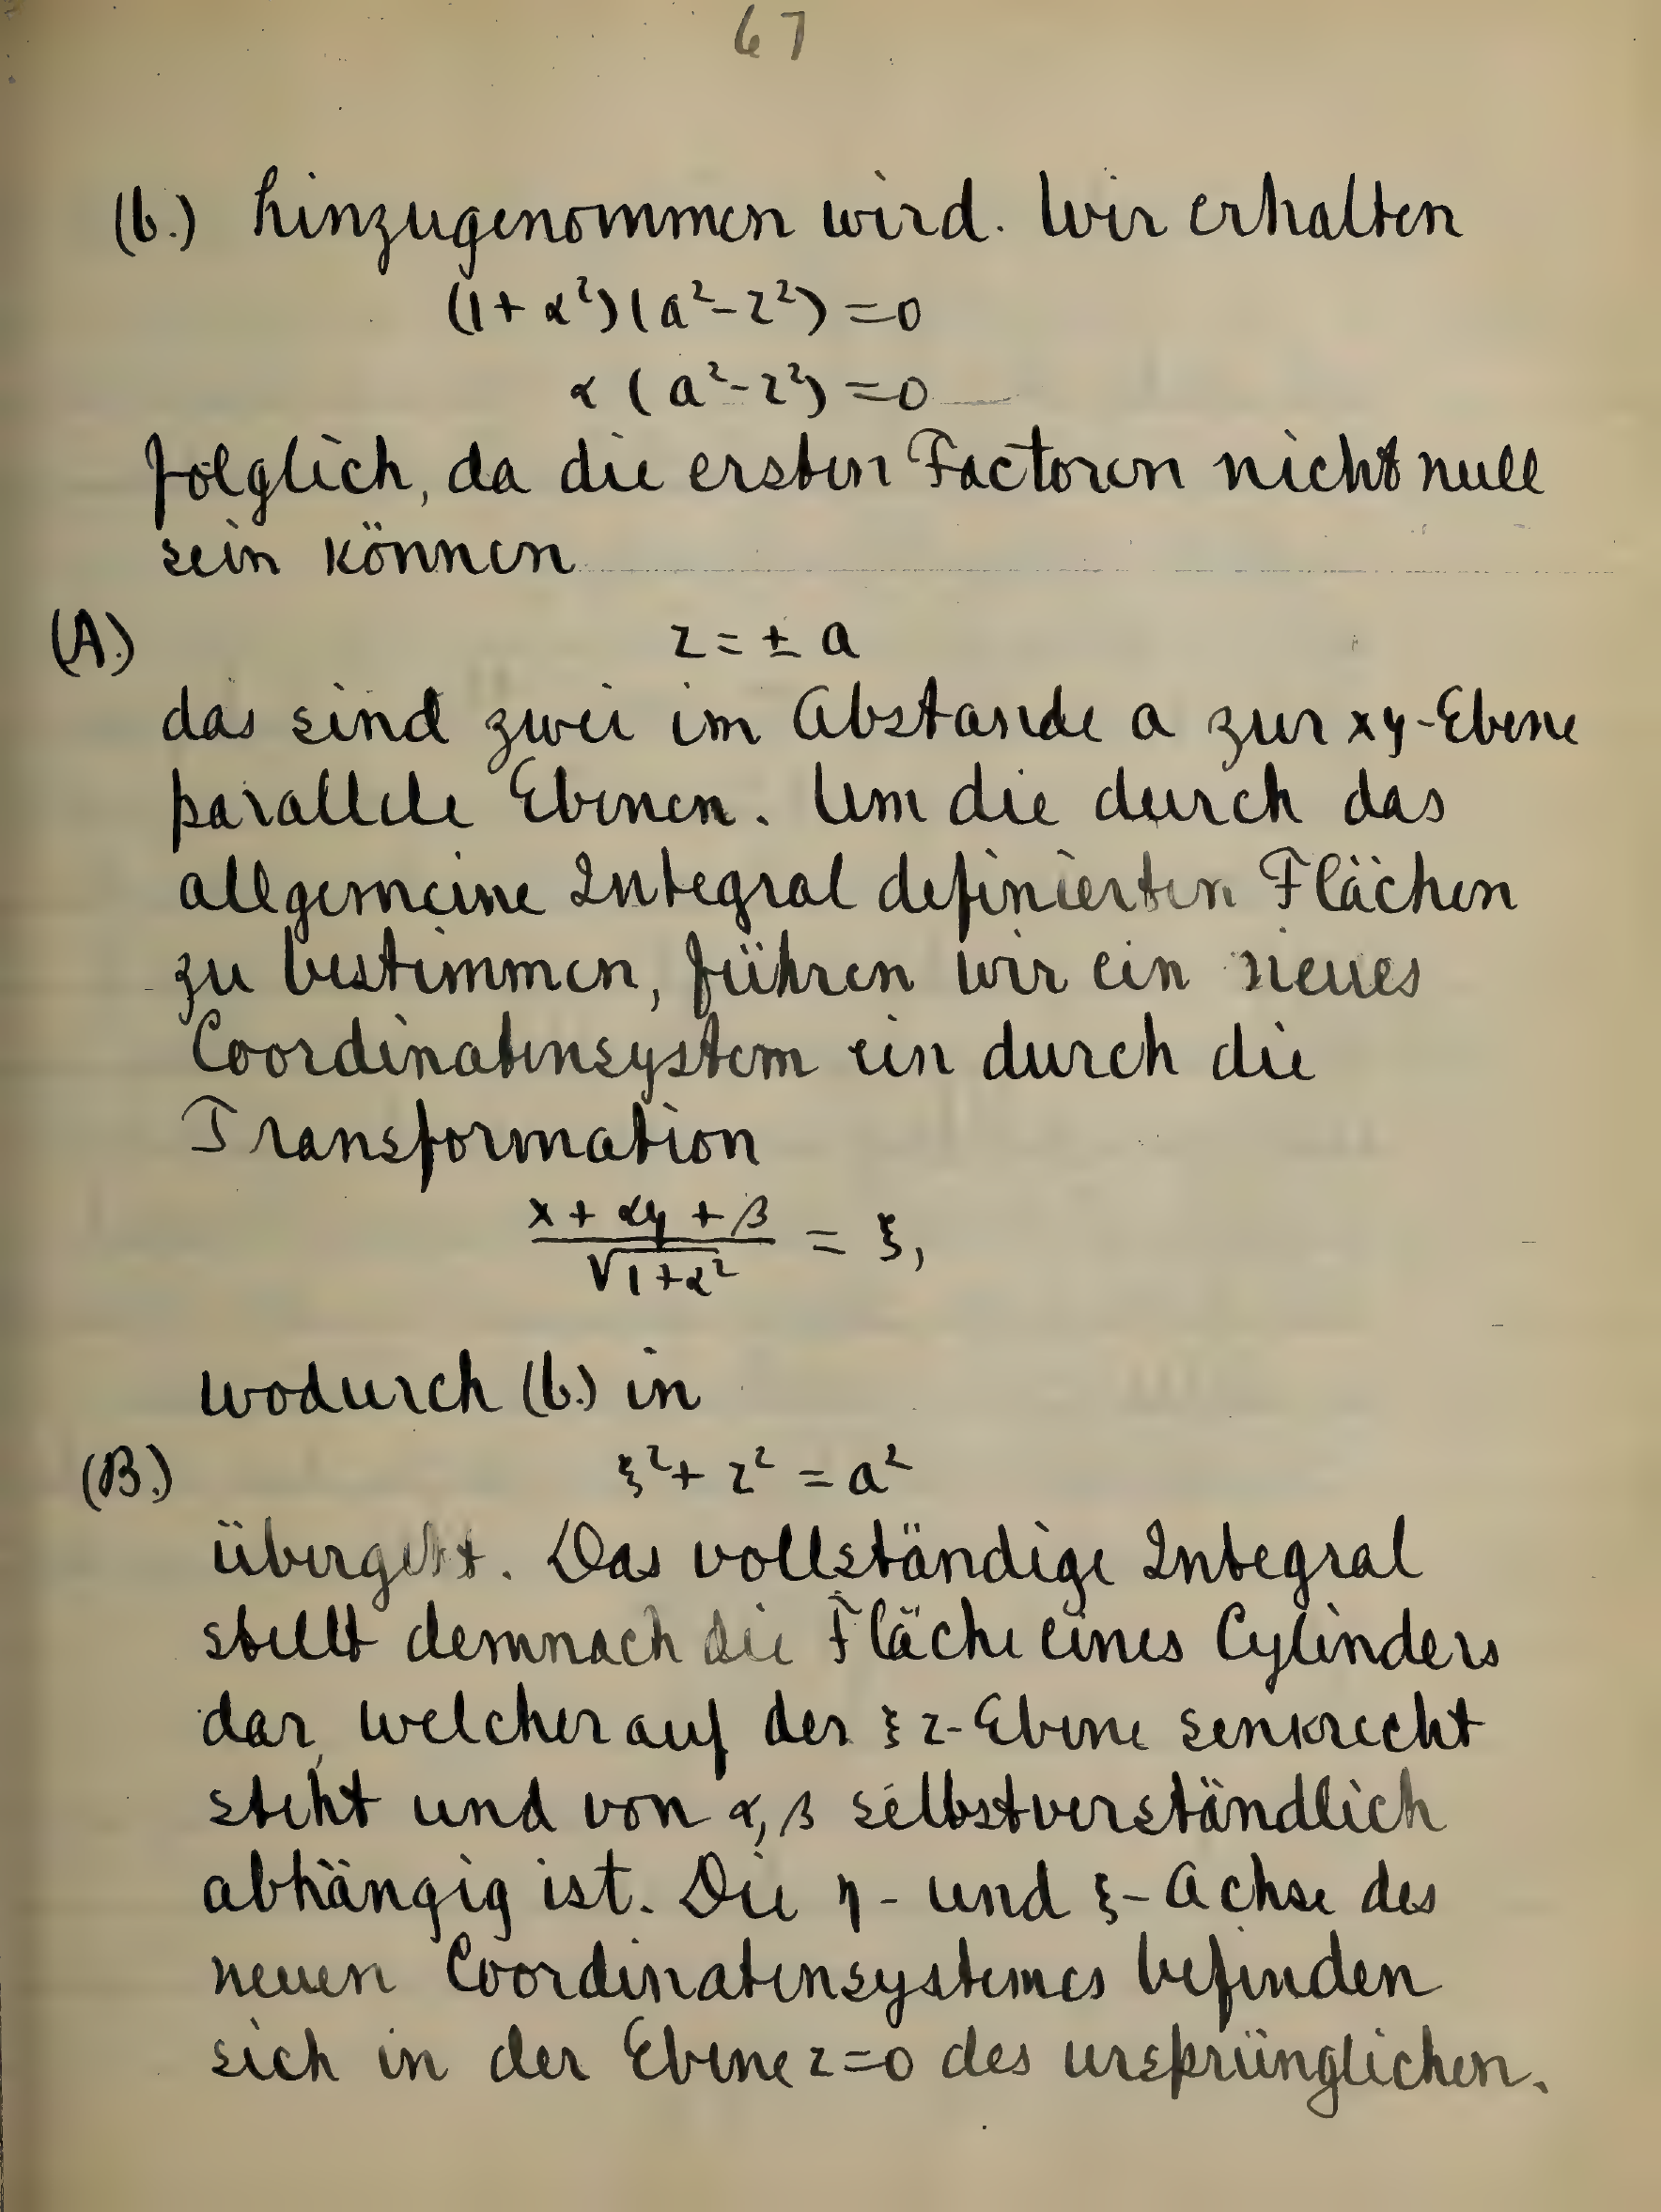 67
(b.) hinzugenommen wird. Wir erhalten
(1 + α²)(a² - z²) = 0
α (a² - z²) = 0
folglich, da die ersten Factoren nicht null
sein können
(A.) z = ± a
das sind zwei im Abstande a zur xy-Ebene
parallele Ebenen. Um die durch das
allgemeine Integral definierten Flächen
zu bestimmen, führen wir ein neues
Coordinatensystem ein durch die
Transformation
(x + αy + β)/√(1+α²) = ξ,
wodurch (b.) in
(B.) ξ² + z² = a²
übergeht. Das vollständige Integral
stellt demnach die Fläche eines Cylinders
dar, welcher auf der ξz-Ebene senkrecht
steht und von α, β selbstverständlich
abhängig ist. Die η- und ξ-Achse des
neuen Coordinatensystemes befinden
sich in der Ebene z=0 des ursprünglichen.